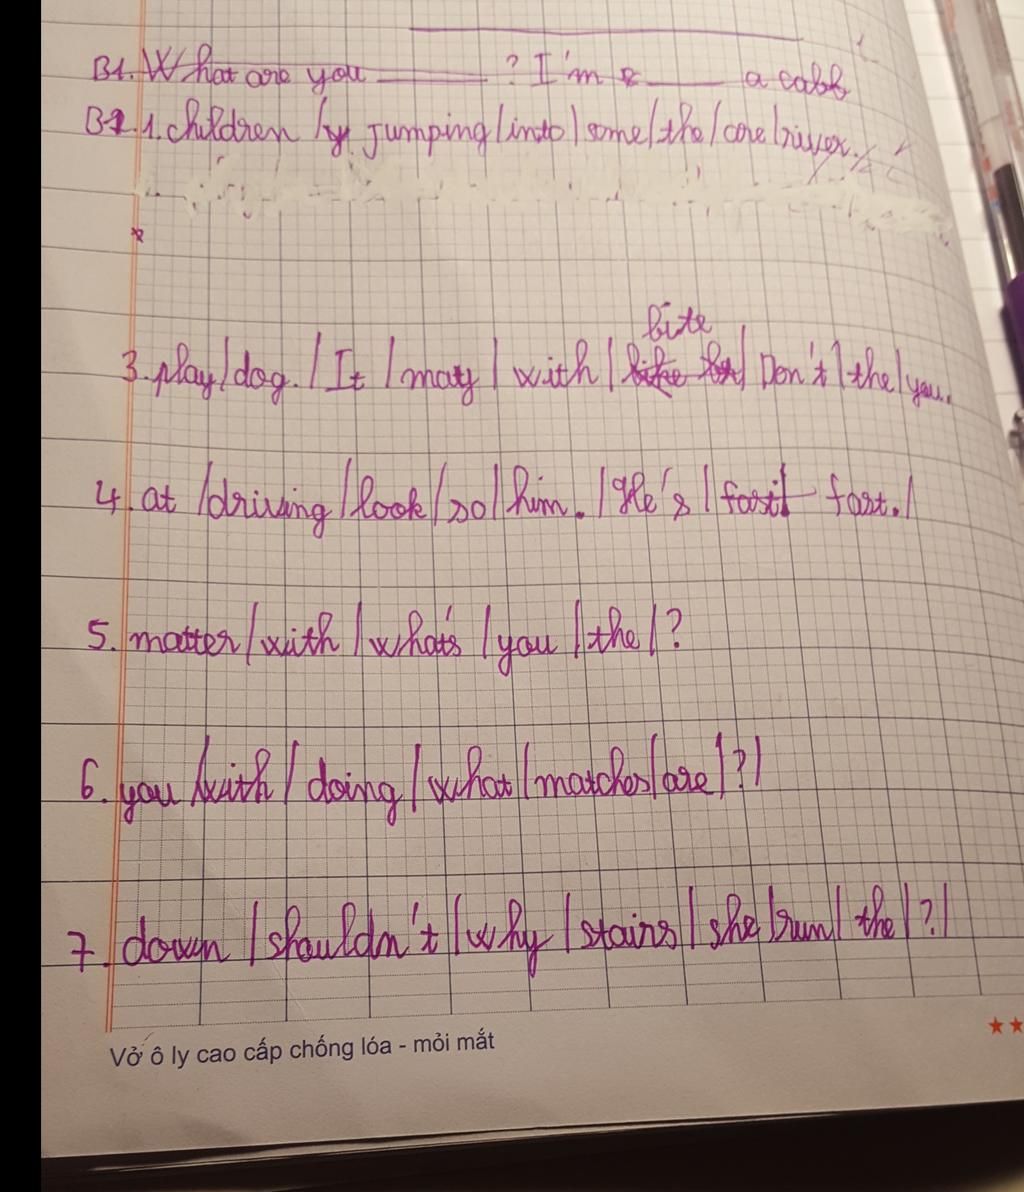 B1. What are you ______ ? I'm ____ a cabb
B2 1. children / jumping / into / some / the / are / river. /
3. play / dog. / It / may / with / bite / Don't / the / you.
4. at / driving / look / so / him. / He's / fast. /
5. matter / with / what's / you / the / ?
6. you / with / doing / what / matches / are / ? /
7. down / shouldn't / why / stairs / she / run / the / ? /
Vở ô ly cao cấp chống lóa - mỏi mắt